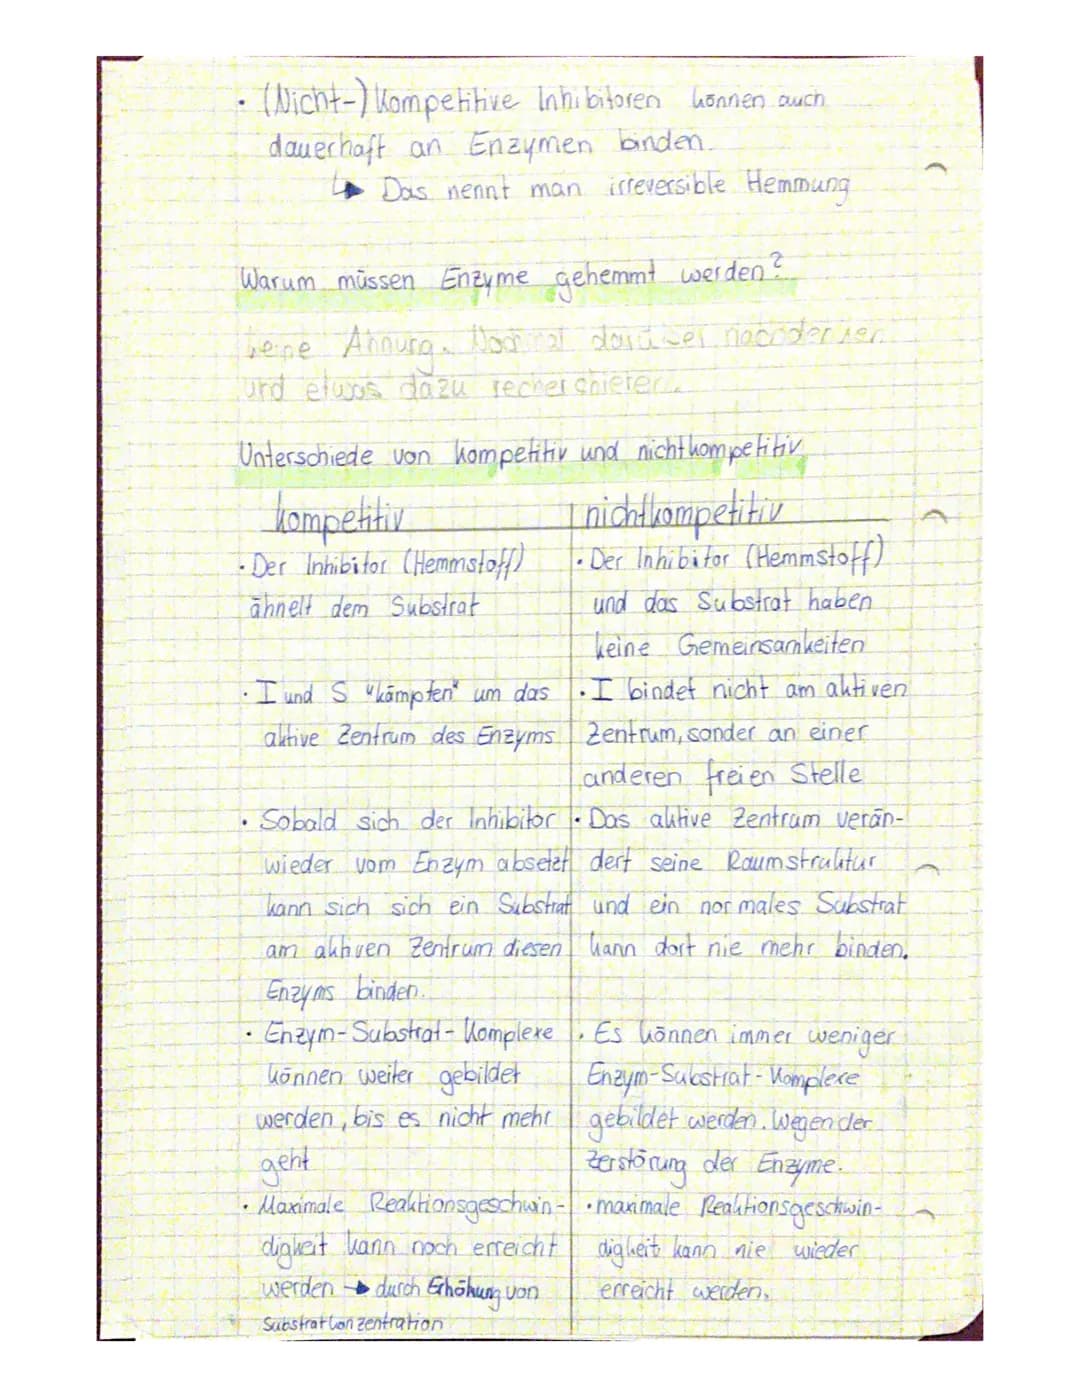 • (Nicht-) Kompetitive Inhibitoren können auch
dauerhaft an Enzymen binden.
↳ Das nennt man irreversible Hemmung
Warum müssen Enzyme gehemmt werden?
keine Ahnung. Nochmal darüber nachdenken
und etwas dazu recherchieren.
Unterschiede von kompetitiv und nichtkompetitiv
kompetitiv
• Der Inhibitor (Hemmstoff)
ähnelt dem Substrat
• I und S "kämpfen" um das
aktive Zentrum des Enzyms
• Sobald sich der Inhibitor
wieder vom Enzym absetzt
kann sich sich ein Substrat
am aktiven Zentrum diesen
Enzyms binden.
• Enzym-Substrat-Komplexe
können weiter gebildet
werden, bis es nicht mehr
geht
• Maximale Reaktionsgeschwin-
digkeit kann noch erreicht
werden → durch Erhöhung von
Substratkonzentration
nichtkompetitiv
• Der Inhibitor (Hemmstoff)
und das Substrat haben
keine Gemeinsamkeiten
• I bindet nicht am aktiven
Zentrum, sonder an einer
anderen freien Stelle
• Das aktive Zentrum verän-
dert seine Raumstruktur
und ein normales Substrat
kann dort nie mehr binden.
• Es können immer weniger
Enzym-Substrat-Komplexe
gebildet werden. Wegen der
Zerstörung der Enzyme.
• maximale Reaktionsgeschwin-
digkeit kann nie wieder
erreicht werden.